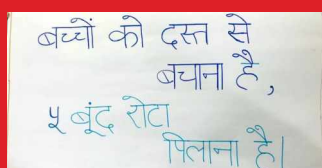 बच्चों को दस्त से
बचाना है,
५ बूंद रोटा
पिलाना है।